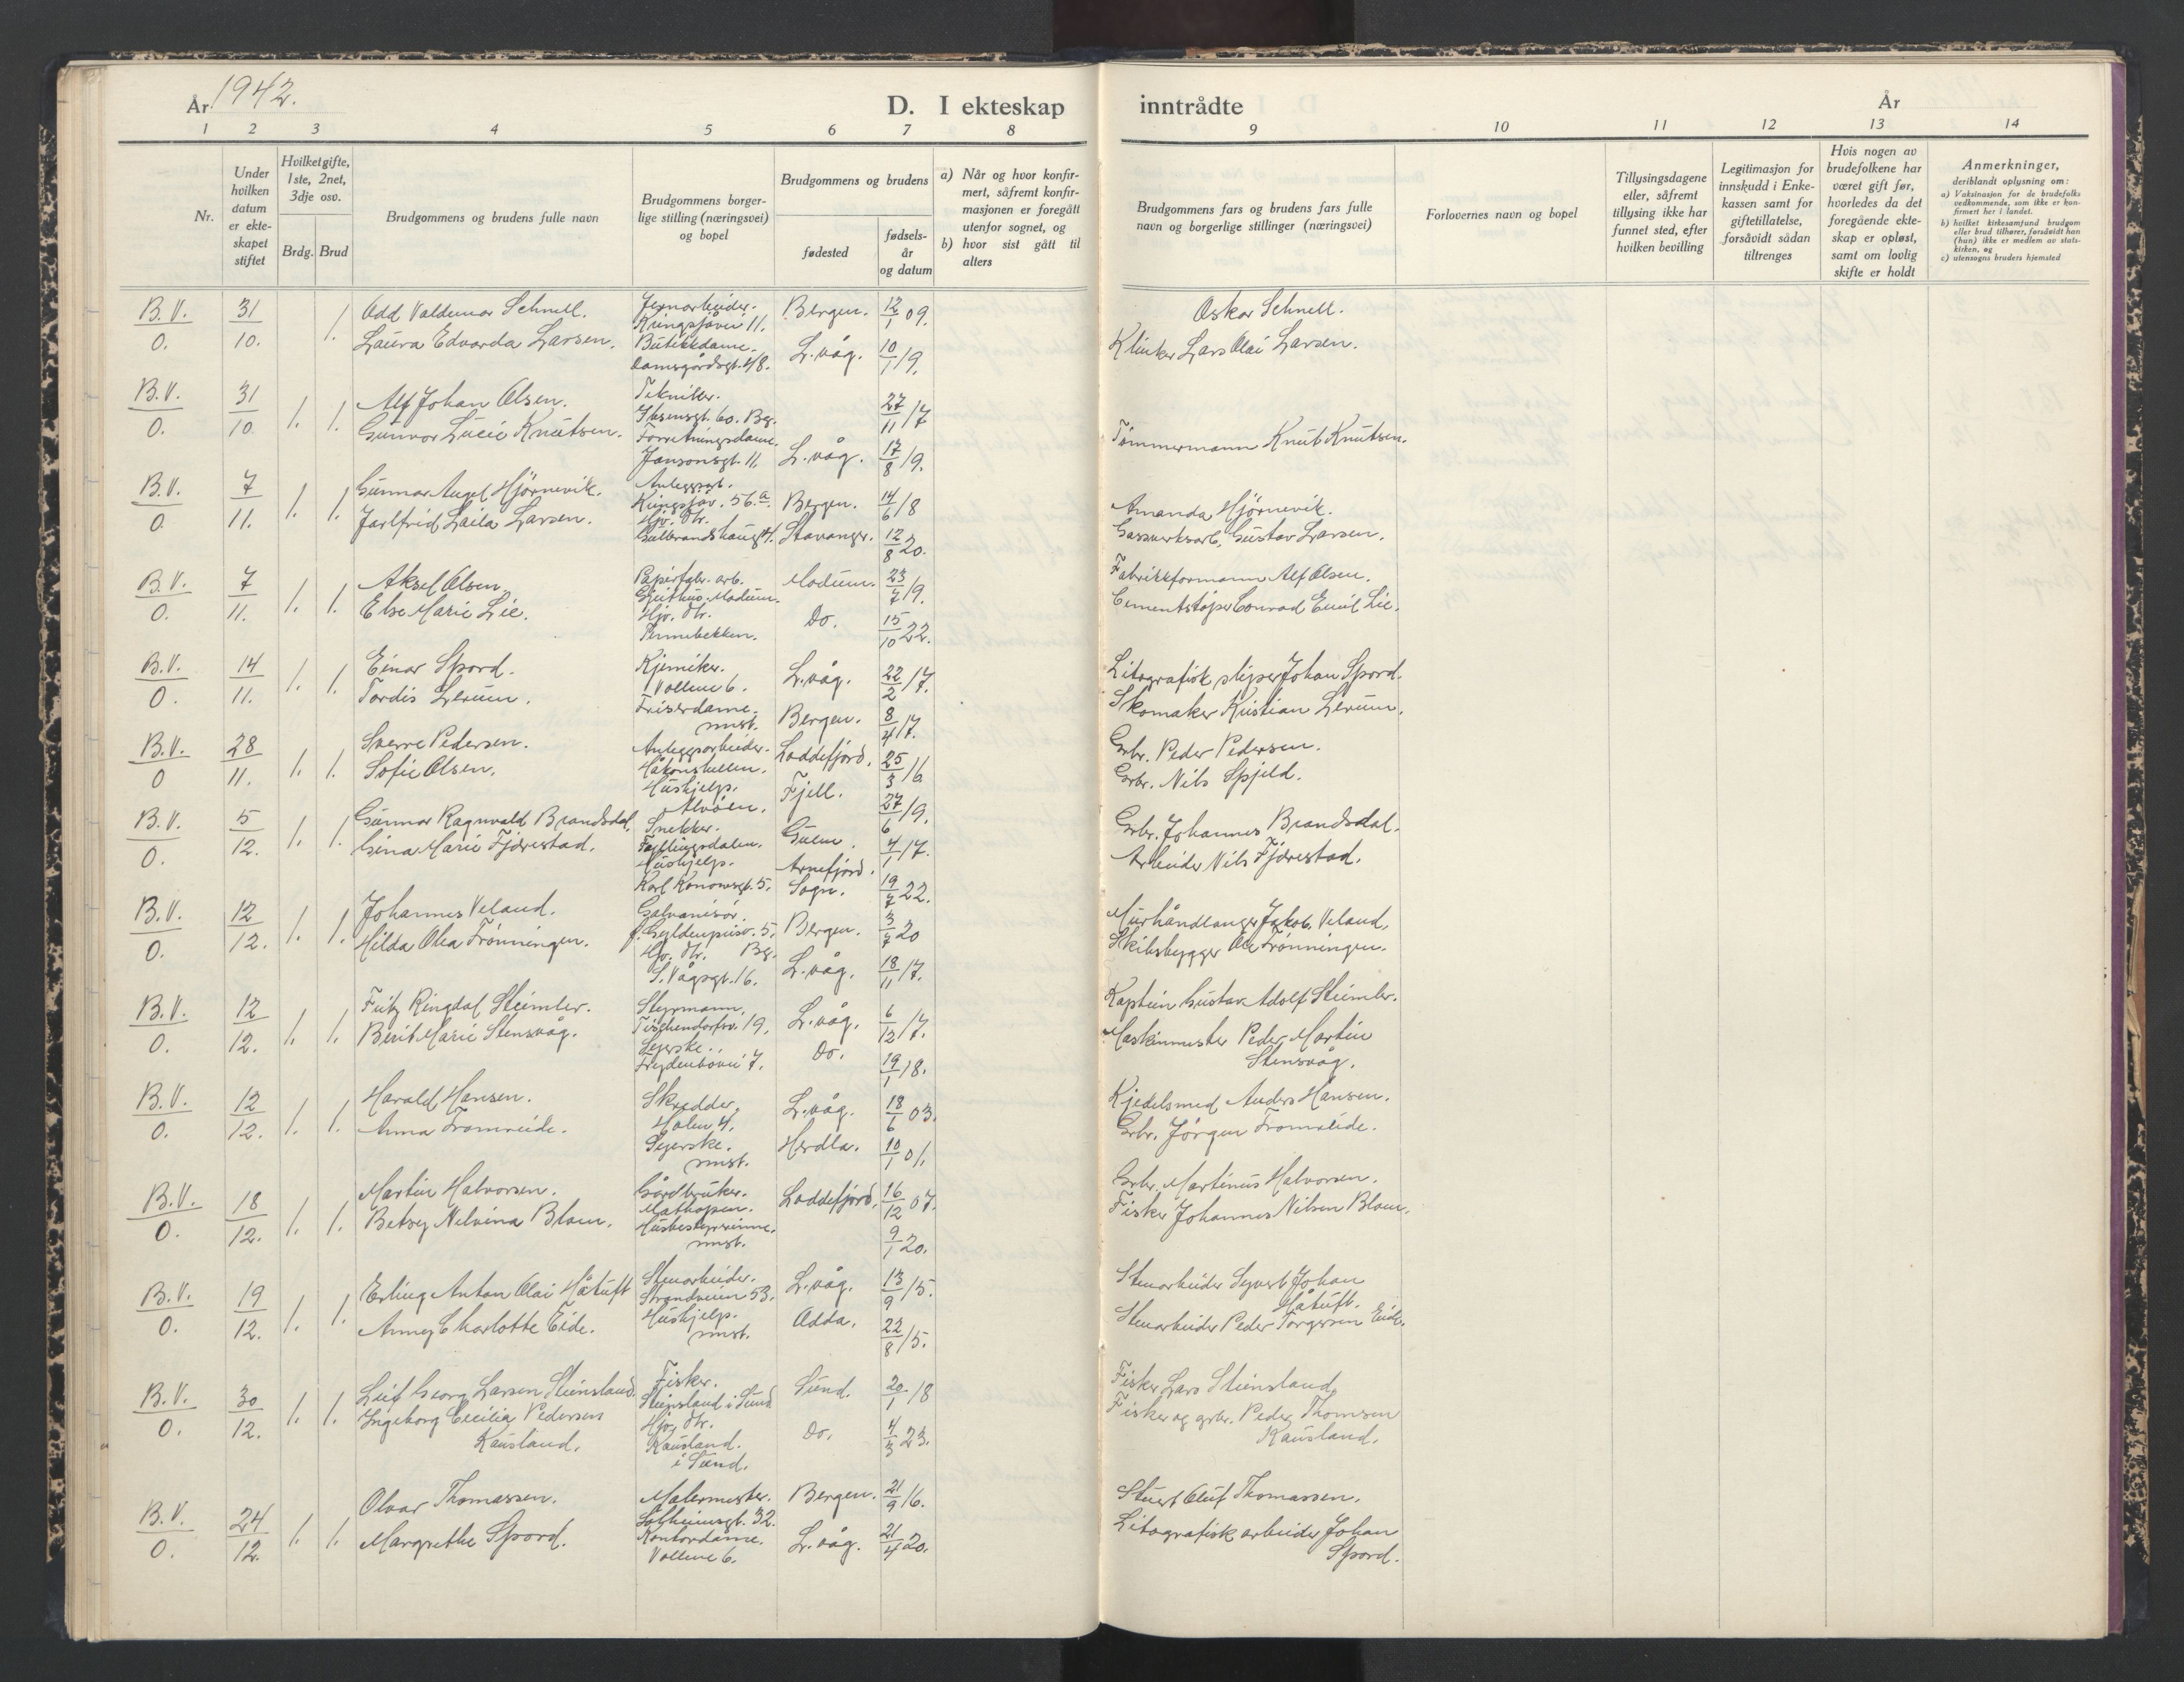 År 1942.
D. I ekteskap inntrådte
År
1 2 3 4 5 6 7 8 9 10 11 12 13 14
Nr.
Under hvilken datum er ekte-skapet stiftet
Hvilket gifte, 1ste, 2net, 3dje osv.
Brdg. Brud
Brudgommens og brudens fulle navn
Brudgommens borger-lige stilling (næringsvei) og bopel
Brudgommens og brudens
fødested
fødsels-år og datum
a) Når og hvor konfir-mert, såfremt konfir-masjonen er foregått utenfor sognet, og
b) hvor sist gått til alters
Brudgommens fars og brudens fars fulle navn og borgerlige stillinger (næringsvei)
Forlovernes navn og bopel
Tillysingsdagene eller, såfremt tillysing ikke har funnet sted, efter hvilken bevilling
Legitimasjon for innskudd i Enke-kassen samt for giftetillatelse, forsåvidt sådan tiltrenges
Hvis nogen av brudefolkene har været gift før, hvorledes da det foregående ekte-skap er opløst, samt om lovlig skifte er holdt
Anmerkninger, deriblandt oplysning om:
a) Vaksinasjon for de brudefolks vedkommende, som ikke er kon-firmert her i landet.
b) hvilket kirkesamfund brudgom eller brud tilhører, forsåvidt han (hun) ikke er medlem av stats-kirken, og
c) utensogns bruders hjemsted
B.V. 31 Odd Valdemar Schnell. Jernarbeider. Bergen. 12/1 09. Oskar Schnell.
Kringsjåvei 11.
O. 10. 1. Laura Edvarda Larsen. Butikkdame. L.våg. 10/1 19. Klinker Lars Olai Larsen.
Damsgårdsgt. 48.
B.V. 31 Alf Johan Olsen. Tekniker. 27/11 17
Ibsensgt. 60. Bg.
O. 10 1. 1. Gunvor Lucie Knutsen. Forretningsdame. L.våg. 17/8 19. Tömmermann Knut Knutsen.
Jansonsgt. 11.
B.V. 7 Gunnar August Hjörnevik. Anleggsarb. Bergen. 14/6 18 Amanda Hjörnevik.
Kringsjåv. 56.a
O. 11. 1. 1. Jarlfrid Laila Larsen. Hjv. dtr. Stavanger. 12/8 20. Gassverksarb. Gustav Larsen.
Gulbrandshaugt 4.
B.V. 7 Aksel Olsen. Papirfabr. arb. Modum. 23/7 19. Fabrikkformann Alf Olsen.
Geithus Modum.
O. 11. 1. 1. Else Marie Lie. Hjv. dtr. Do. 15/10 22. Cementstøper Conrad Emil Lie.
Tennebekken.
B.V. 14 Einar Spord. Kjemiker. L.våg. 22/2 17. Litografisk sliper Johan Spord.
Vollene 6.
O. 11. 1. 1. Tordis Lerum. Friserdame. Bergen. 8/4 17. Skomaker Kristian Lerum.
smst.
B.V. 28 Sverre Pedersen. Anleggsarbeider. Loddefjord. 25/3 16 Grbr. Peder Pedersen.
Håkonshellen.
O 11. 1. 1. Sofie Olsen. Hushjelp. Fjell. 27/6 19. Grbr. Nils Spjeld.
Alvöen.
B.V. 5 Gunnar Ragnvald Brandsdal. Snekker. Gulen. 4/1 17. Grbr. Johannes Brandsdal.
Fyllingsdalen.
O. 12. 1. 1. Gina Marie Fjærestad. Hushjelp. Arnefjord. Sogn. 19/7 22. Arbeider Nils Fjærestad.
Karl Konowsgt. 5.
B.V. 12 Johannes Veland. Galvanisør. Bergen. 3/7 20 Murhåndlanger Jakob Veland.
f. Gyldenprisv. 5. Bg.
O. 12. 1. 1. Hilda Olea Trönningen. Hjv. dtr. L.våg. 18/11 17. Skibsbygger Ole Trönningen.
S. Vågsgt. 16.
B.V. 12 Fritz Ringdal Steimler. Styrmann. L.våg. 6/12 17. Kaptein Gustav Adolf Steimler.
Tischendorfsv. 19.
O. 12. 1. 1. Berit Marie Stensvåg. Syerske. Do. 19/1 18. Maskinmester Peder Martin Stensvåg.
Frydenbövei 7.
B.V. 12 Harald Hansen. Skredder. L.våg. 18/6 03. Kjedelsmed Anders Hansen.
Holen 4.
O. 12. 1. 1. Anna Tromreide. Syerske. Herdla. 10/1 01. Grbr. Jörgen Tromreide.
smst.
B.V. 18 Martin Halvorsen. Gårdbruker. Loddefjord. 16/12 07. Grbr. Martinus Halvorsen.
Mathopen.
O. 12. 1. 1. Betsey Nelvina Blom. Husbestyrerinne. 9/1 20. Fisker Johannes Nilsen Blom.
smst.
B.V. 19 Erling Anton Olai Håtuft Stenarbeider. L.våg. 13/9 15. Stenarbeider Syvert Johan Håtuft.
Strandveien 53.
O. 12. 1. 1. Anney Charlotte Eide. Hushjelp. Odda. 22/8 15. Stenarbeider Peder Torgersen Eide.
smst.
B.V. 30 Leif Georg Larsen Steinsland. Fisker. Sund. 20/1 18 Fisker Lars Steinsland.
Steinsland i Sund
O. 12. 1. 1. Ingeborg Cecilia Pedersen Kausland. Hjv. dtr. Do. 4/3 23. Fisker og grbr. Peder Thomsen Kausland.
Kausland. i Sund.
B.V. 24 Olvar Thomassen. Malermester. Bergen. 21/9 16. Stuert Oluf Thomassen.
Solheimsgt. 32.
O. 12. 1. 1. Margrethe Spord. Kontordame. L.våg. 21/4 20. Litografisk arbeider Johan Spord.
Vollene 6.